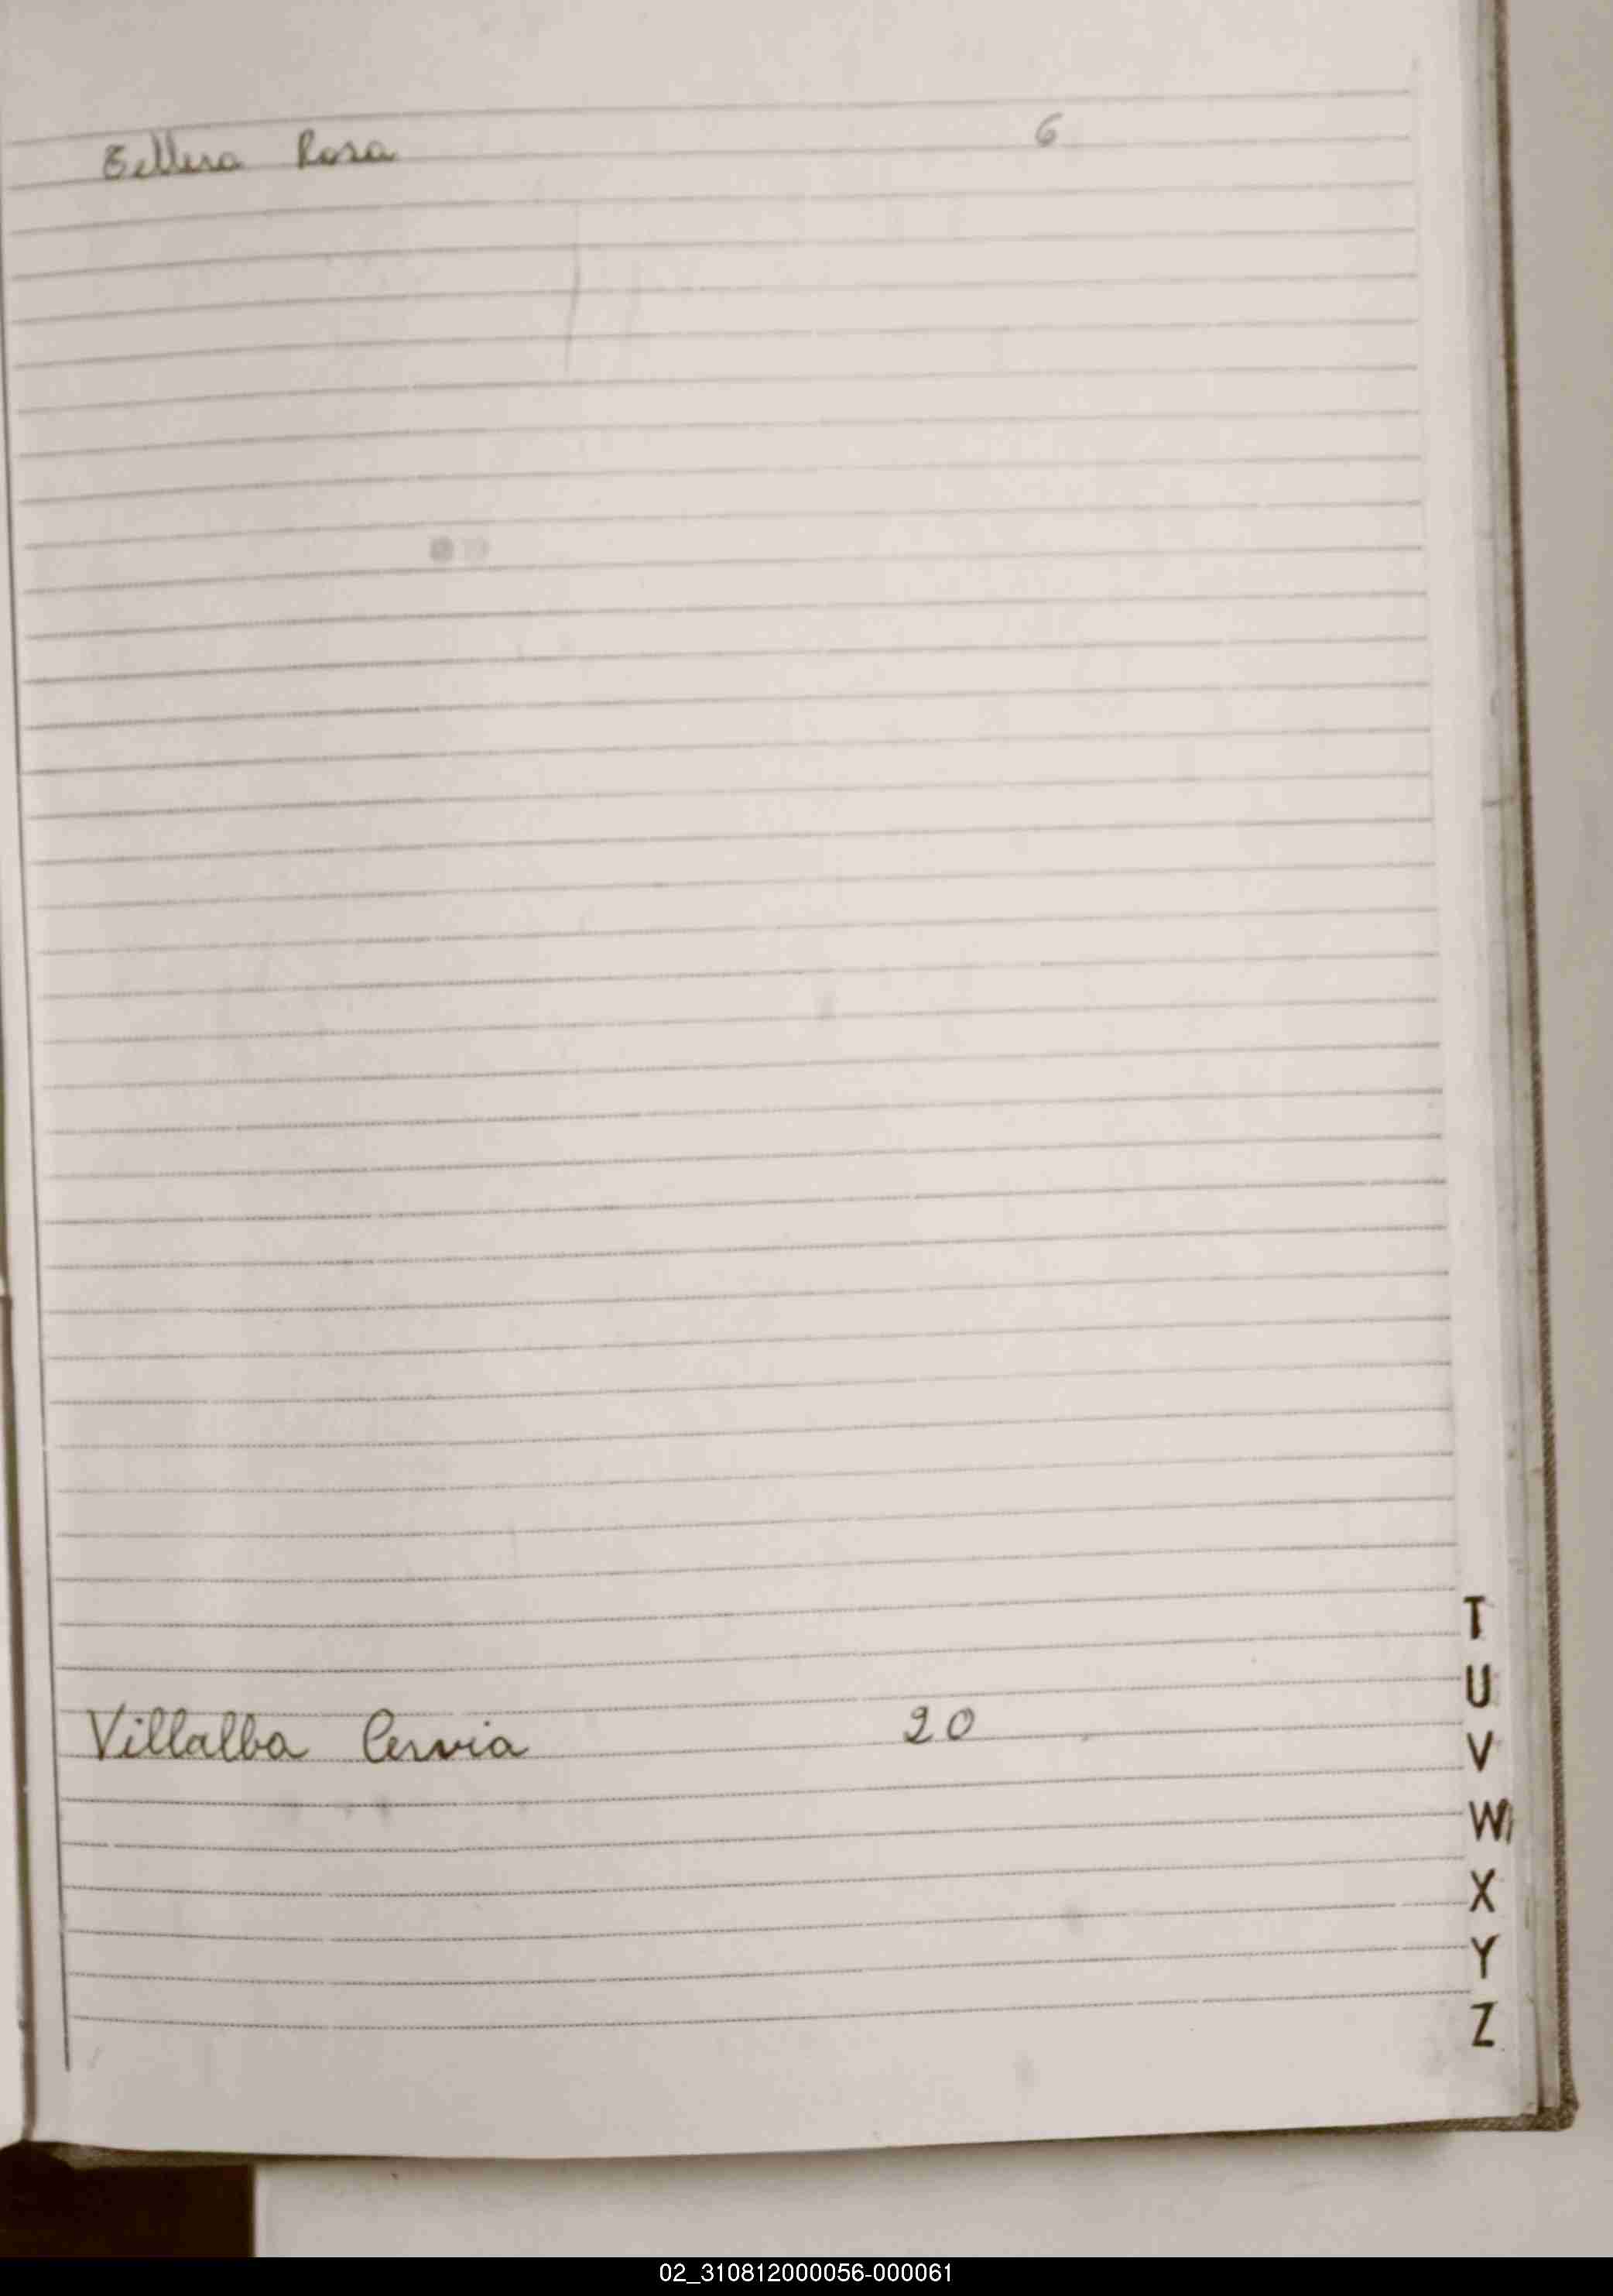 Tellera Rosa 6
Villalba Cervia 20
T
U
V
W
X
Y
Z
02_310812000056-000061